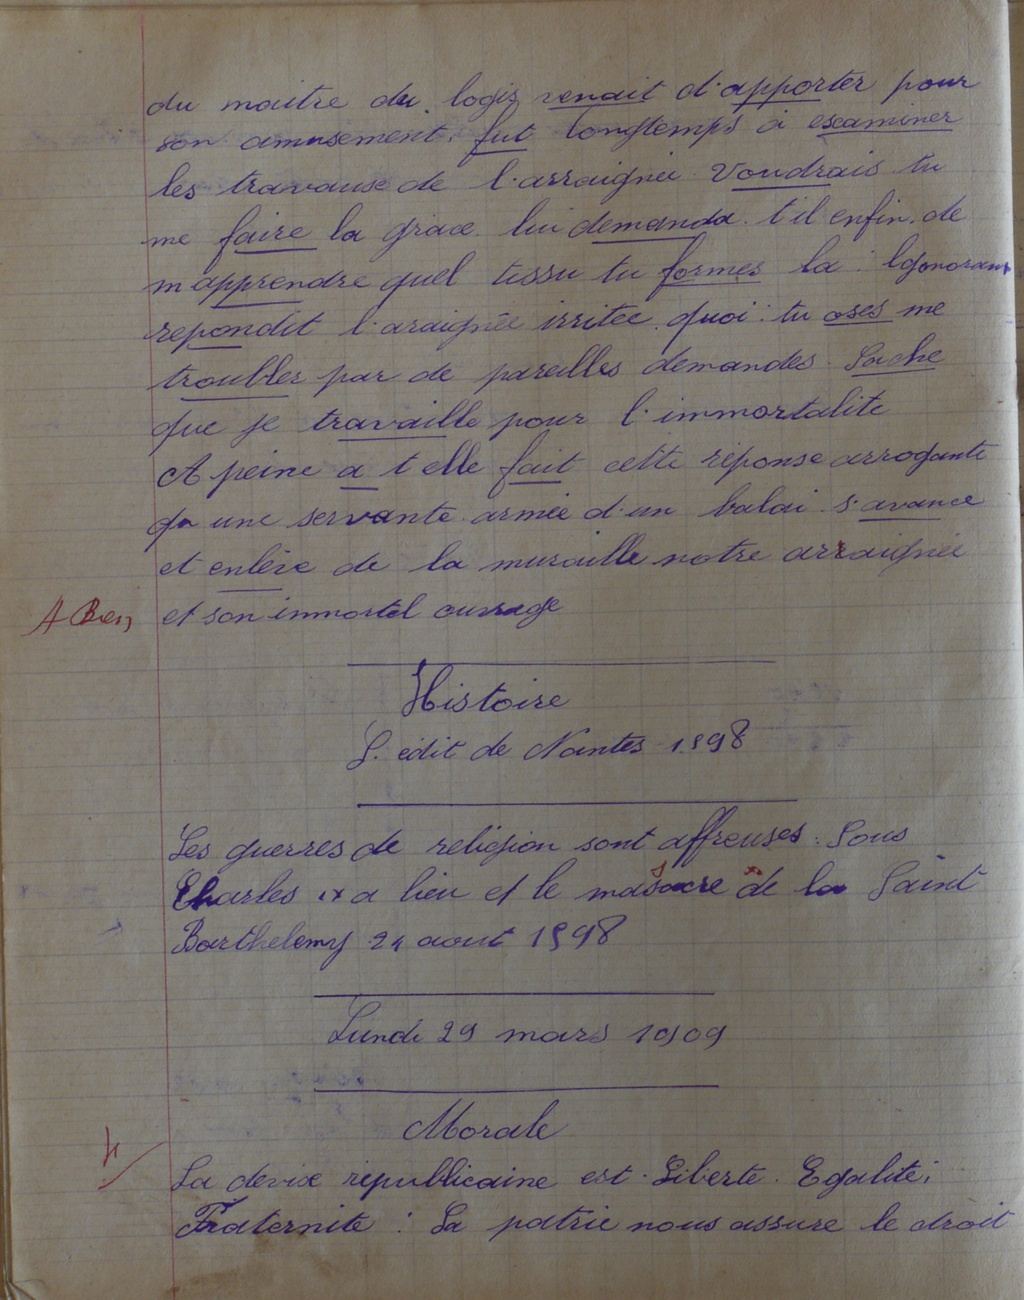 du maitre du logis venait d'apporter pour
son amusement. fut longtemps à escaminer
les travause de l'arraignée. Voudrais tu
me faire la grace. lui demanda. t'il enfin. de
m apprendre quel tissu tu formes la : Ignorant
repondit l'araignée irritée. quoi : tu oses me
troubler par de pareilles demandes. Sache
que je travaille pour l'immortalité
A peine a t elle fait cette réponse arrogante
qu une servante armée d'un balai s'avance
et enlève de la muraille notre arraignée
A Bien et son immortel ouvrage
Histoire
L. édit de Nantes 1598
Les guerres de religion sont affreuses. Sous
Charles ix a lieu et le massacre de la Saint
Barthelemy 24 aout 1598
Lundi 29 mars 1909
Morale
La devise républicaine est. Liberté. Egalité;
Fraternité : La patrie nous assure le droit